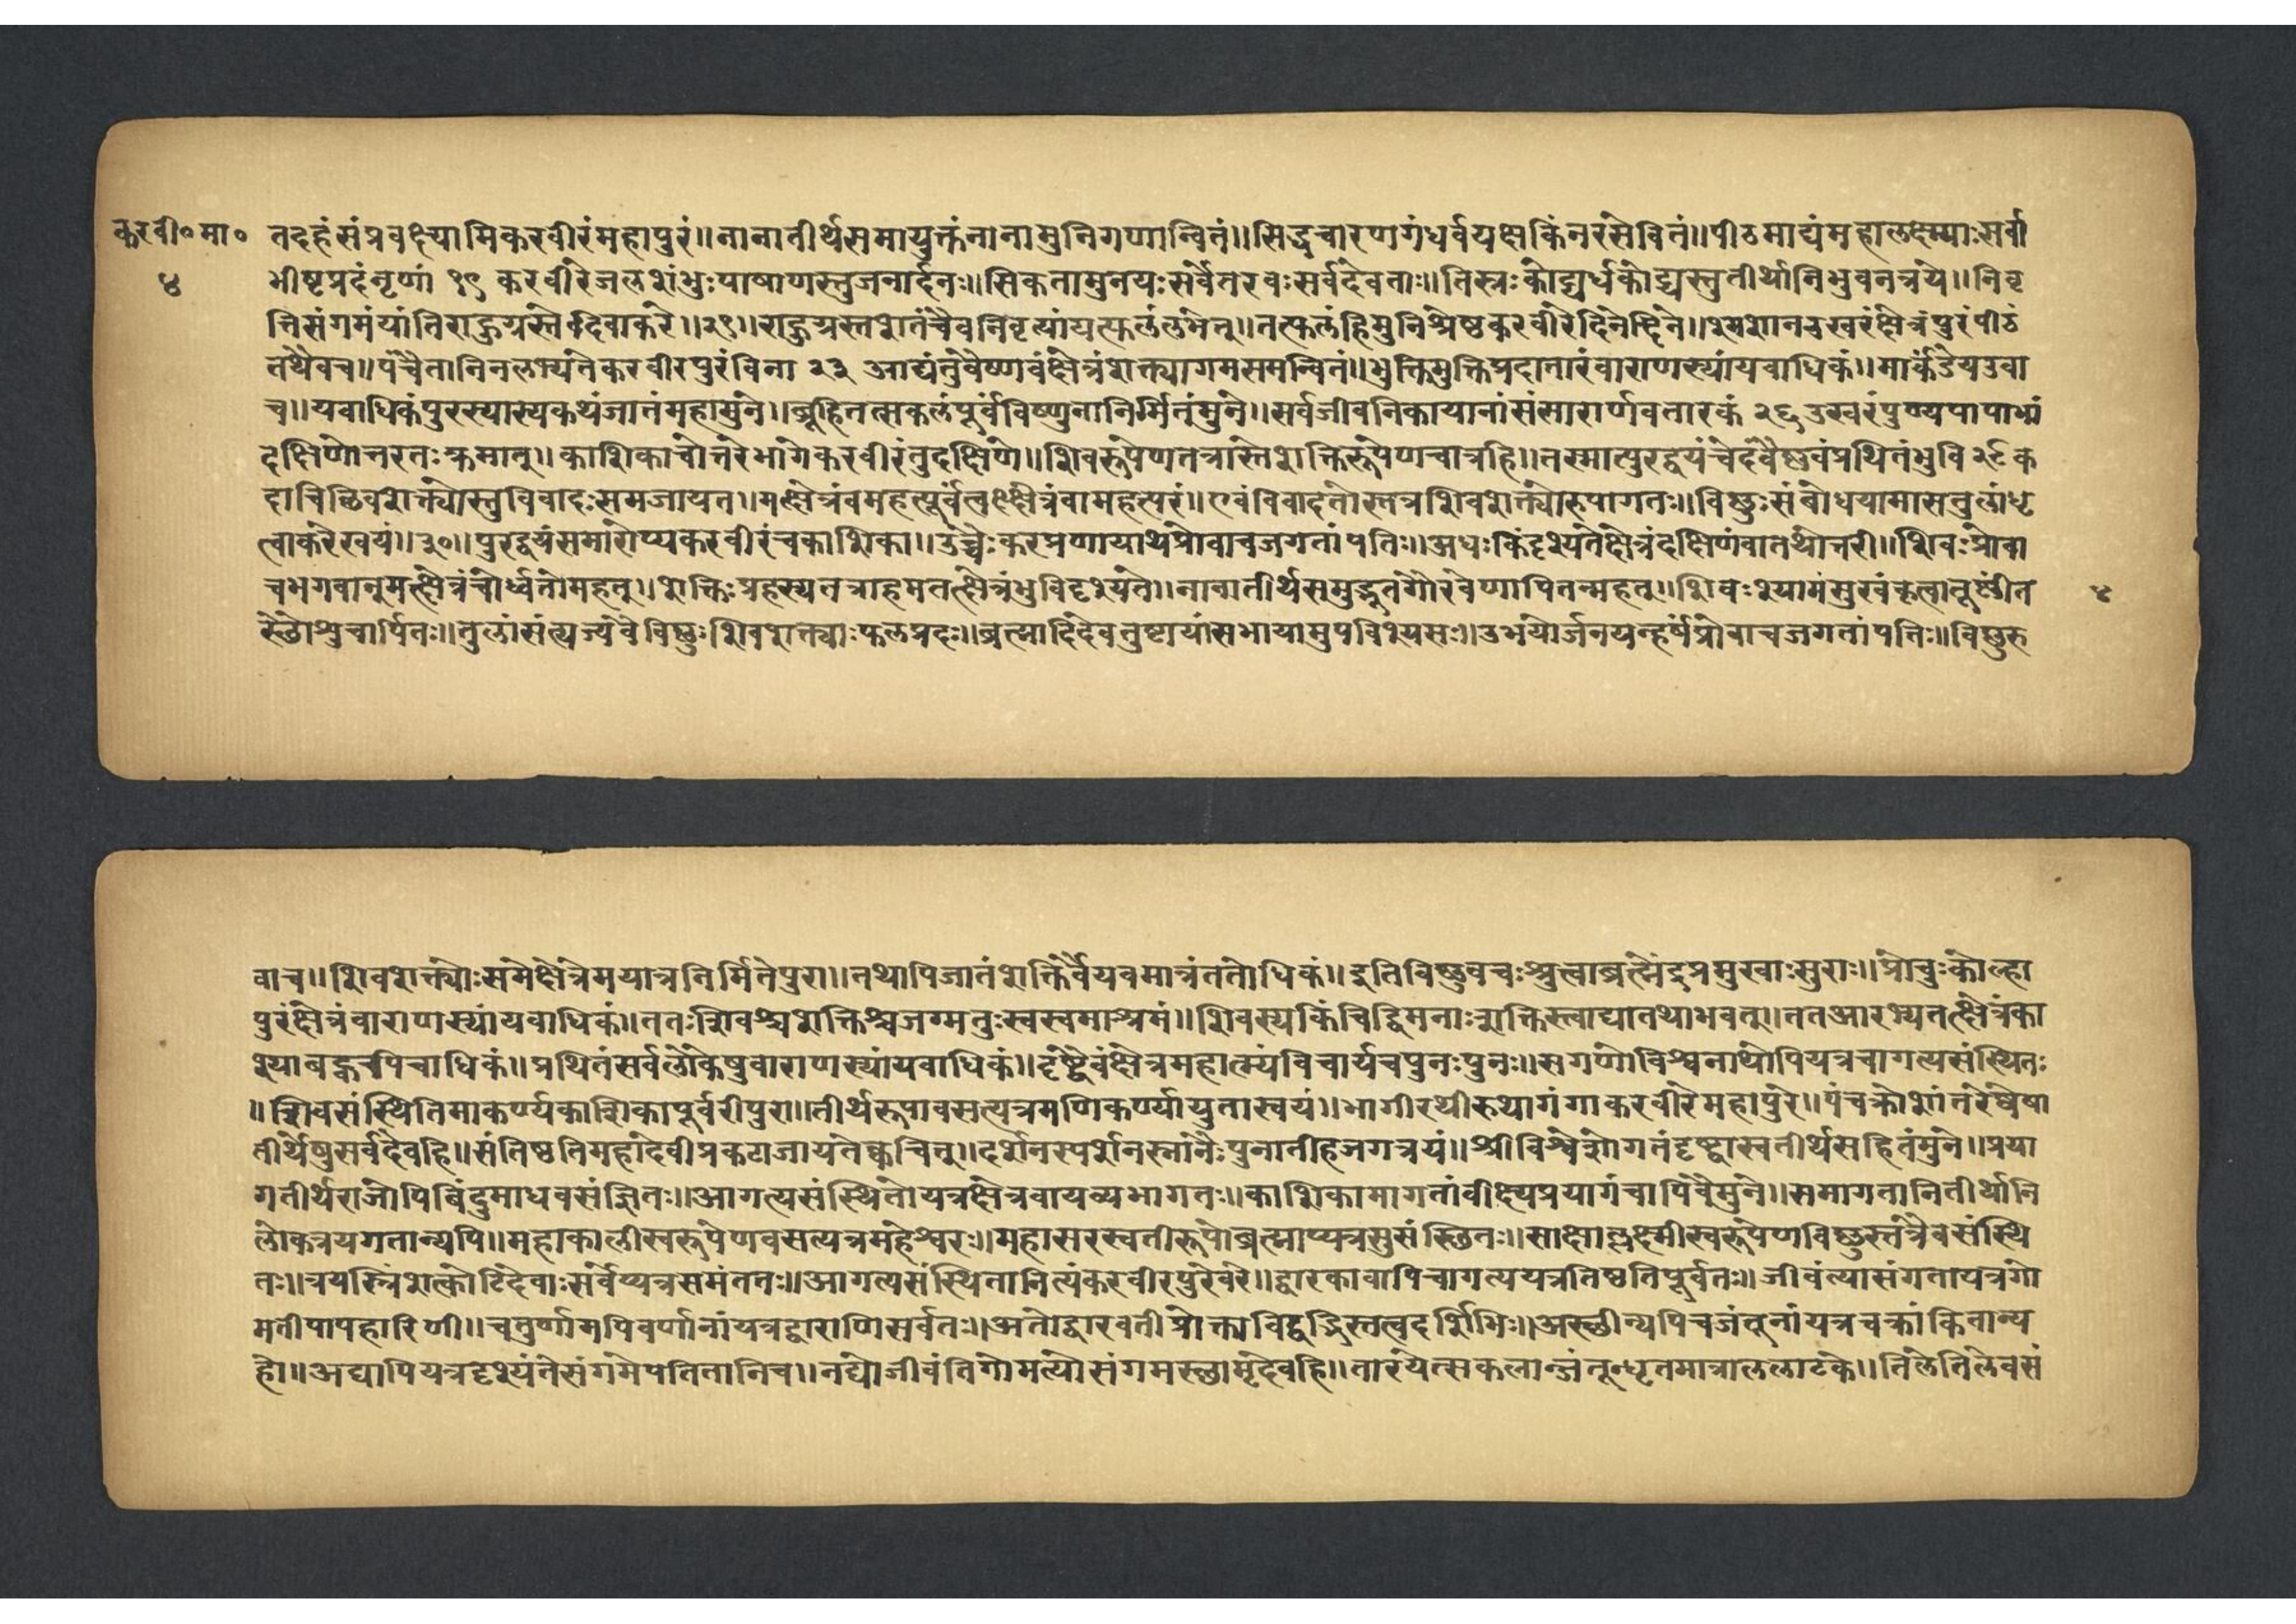 करवी०मा०
४
तदहंसंप्रवक्ष्यामिकरवीरंमहापुरं॥नानातीर्थसमायुक्तंनानामुनिगणान्वितं॥सिद्धचारणगंधर्वयक्षकिंनरसेवितं॥पीठमाद्यंमहालक्ष्म्याःसर्वा
भीष्टप्रदंनृणां १९ करवीरेजलशंभुःपाषाणस्तुजनार्दनः॥सिकतामुनयःसर्वेतरवःसर्वदेवताः॥तिस्त्रःकोट्यर्धकोट्यस्तुतीर्थानिभुवनत्रये॥निवृ
त्तिसंगमंयांतिराहुग्रस्तेदिवाकरे॥२१॥राहुग्रस्तशतंचैवनिवृत्यांयत्फलंलभेत्॥तत्फलंहिमुनिश्रेष्ठकरवीरेदिनेदिने॥श्मशानचुखरंक्षेत्रंपुरंपीठं
तथैवच॥पंचैतानिनलभ्यंतेकरवीरपुरंविना २३ आद्यंतुवैष्णवंक्षेत्रंशक्त्यागमसमन्वितं॥भुक्तिमुक्तिप्रदातारंवाराणस्यांयवाधिकं॥मार्कंडेयउवा
च॥यवाधिकंपुरस्यास्यकथंजातंमहामुने॥ब्रूहितत्सकलंपूर्वंविष्णुनानिर्मितंमुने॥सर्वजीवनिकायानांसंसारार्णवतारकं २६ उस्वरंपुण्यपापाभ्यां
दक्षिणोत्तरतःक्रमात्॥काशिकाचोत्तरेभागेकरवीरंतुदक्षिणे॥शिवरूपेणतत्रास्तेशक्तिरूपेणचात्रहि॥तस्मात्पुरद्वयंचेदंवैष्णवंप्रथितंभुवि२८क
दाचिच्छिवशक्त्योस्तुविवादःसमजायत॥मत्क्षेत्रंवमहत्पूर्वंत्वत्क्षेत्रंवामहत्परं॥एवंविवादतोस्तत्रशिवशक्त्योरुपागतः॥विष्णुःसंबोधयामासतुलांधृ
त्वाकरेस्वयं॥३०॥पुरद्वयंसमारोप्यकरवीरंचकाशिका॥उच्चैःकरप्रणायाथप्रोवाचजगतांपतिः॥अधःकिंदृश्यतेक्षेत्रंदक्षिणंवातथोत्तरी॥शिवःप्रोवा
चभगवान्मत्क्षेत्रंचोर्ध्वतोमहत्॥शक्तिःप्रहस्यतत्राहमतत्क्षेत्रंभुविदृश्यते॥नावातीर्थसमुद्भुतंगौरवेणापितन्महत्॥शिवःश्यामंमुखंकृत्वातूष्णींत
स्थौश्रुचार्पितः॥तुलांसंत्यज्यवैविष्णुःशिवशक्त्याःफलप्रदः॥ब्रह्मादिदेवतुष्टायांसभायामुपविश्यसः॥उभयोर्जनयन्हर्षंप्रोवाचजगतांपतिः॥विष्णुरु
४
वाच॥शिवशक्त्योःसमेक्षेत्रेमयात्रनिर्मितेपुरा॥तथापिजातंशक्तिर्वैयवमात्रंततोधिकं॥इतिविष्णुवचःश्रुत्वाब्रह्मेंद्रप्रमुखाःसुराः॥प्रोचुःकोल्हा
पुरंक्षेत्रंवाराणस्यांयवाधिकं॥ततःशिवश्चशक्तिश्चजग्मतुःस्वस्वमाश्रमं॥शिवस्यकिंचिद्विमनाःशक्तिस्त्वाद्यातथाभवत्॥ततआरभ्यतत्क्षेत्रंका
श्याबह्वचपिचाधिकं॥प्रथितंसर्वलोकेषुवाराणस्यांयवाधिकं॥दृष्ट्वैवंक्षेत्रमहात्म्यंविचार्यचपुनःपुनः॥सगणोविश्वनाथोपियत्रचागत्यसंस्थितः
॥शिवसंस्थितिमाकर्ण्यकाशिकापूर्वरीपुरा॥तीर्थरूपावसत्यत्रमणिकर्ण्यायुतास्वयं॥भागीरथीरुथागंगाकरवीरेमहापुरे॥पंचक्रोशांतरेष्वेषा
तीर्थेषुसर्वदेवहि॥संतिष्ठतिमहादेवीप्रकटाजायतेक्वचित्॥दर्शनस्पर्शनस्नानैःपुनातीहजगत्रयं॥श्रीविश्वेशोगतंदृष्ट्वास्वतीर्थसहितंमुने॥प्रया
गतीर्थराजोपिबिंदुमाधवसंज्ञितः॥आगत्यसंस्थितोयत्रक्षेत्रवायव्यभागतः॥काशिकामागतांवीक्ष्यप्रयागंचापिवैमुने॥समागतानितीर्थानि
लोकत्रयगतान्यपि॥महाकालीस्वरूपेणवसत्यत्रमहेश्वरः॥महासरस्वतीरूपोब्रह्माप्यत्रसुसंस्थितः॥साक्षाल्लक्ष्मीस्वरूपेणविष्णुस्तत्रैवसंस्थि
तः॥त्रयस्त्रिंशत्कोटिदेवाःसर्वेप्यत्रसमंततः॥आगत्यसंस्थितानित्यंकरवीरपुरेवरे॥द्वारकावापिचागत्ययत्रतिष्ठतिपूर्वतः॥जीवंत्यासंगतायत्रगो
मतीपापहारिणी॥चतुर्णामपिवर्णानांयत्रद्वाराणिसर्वतः॥अतोद्वारवतीप्रोक्ताविद्वद्भिस्तत्वदर्शिभिः॥अस्थीन्यपिचजंतूनांयत्रचक्रांकितान्य
हो॥अद्यापियत्रदृश्यंतेसंगमेपतितानिच॥नद्योजीवंतिगोमत्योसंगमस्थामृदेवहि॥तारयेत्सकलान्जंतून्धृतमात्राललाटके॥तिलेतिलेवसं